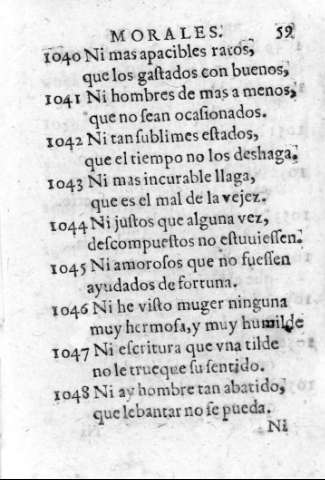 MORALES. 59
1040 Ni mas apacibles ratos,
que los gastados con buenos,
1041 Ni hombres de mas a menos,
que no sean ocasionados.
1042 Ni tan sublimes estados,
que el tiempo no los deshaga.
1043 Ni mas incurable llaga,
que es el mal de la vejez.
1044 Ni justos que alguna vez,
descompuestos no estuuiessen.
1045 Ni amorosos que no fuessen
ayudados de fortuna.
1046 Ni he visto muger ninguna
muy hermosa, y muy humilde
1047 Ni escritura que vna tilde
no le trueque su sentido.
1048 Ni ay hombre tan abatido,
que lebantar no se pueda.
Ni